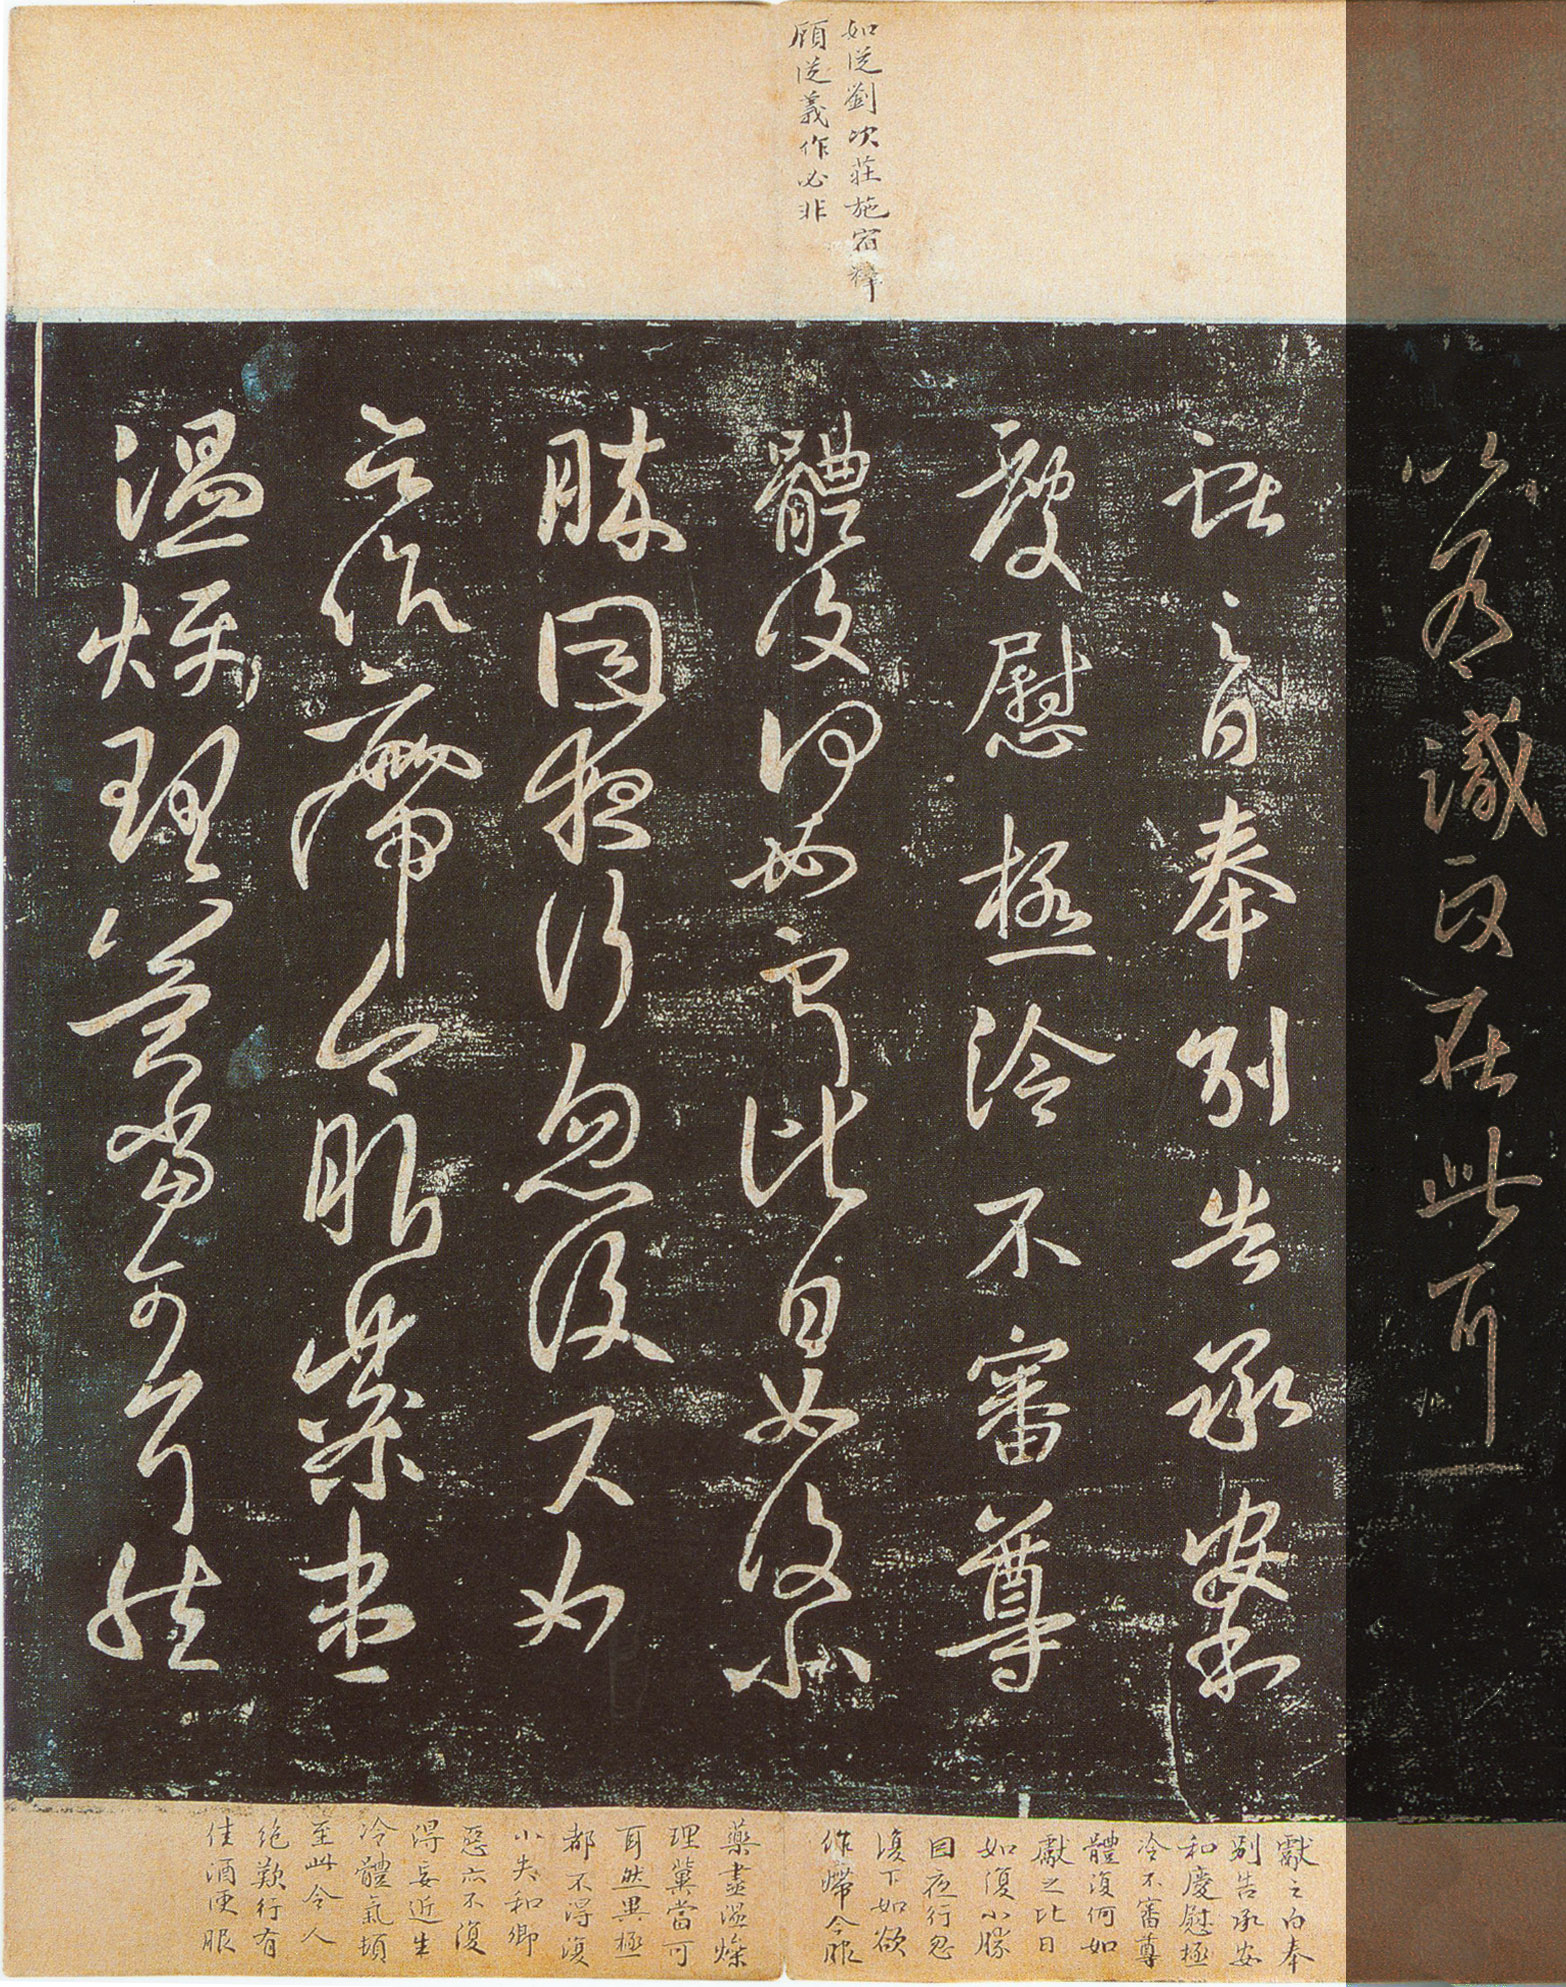 以為識更在此耳
獻之白奉別告承安和
慶慰極冷不審尊
體復何如獻之比日如復小
勝因夜行忽復下如
欲作㿃今服藥盡
溫燥理冀當可耳然
如從劉次莊施宿釋
顧從義作必非
獻之白奉
別告承安
和慶慰極
冷不審尊
體復何如
獻之比日
如復小勝
因夜行忽
復下如欲
作㿃今服
藥盡溫燥
理冀當可
耳然異極
都不得復
小失和卿
惡亦不復
得妄近生
冷體氣頓
至此令人
絕歎行有
佳酒便服